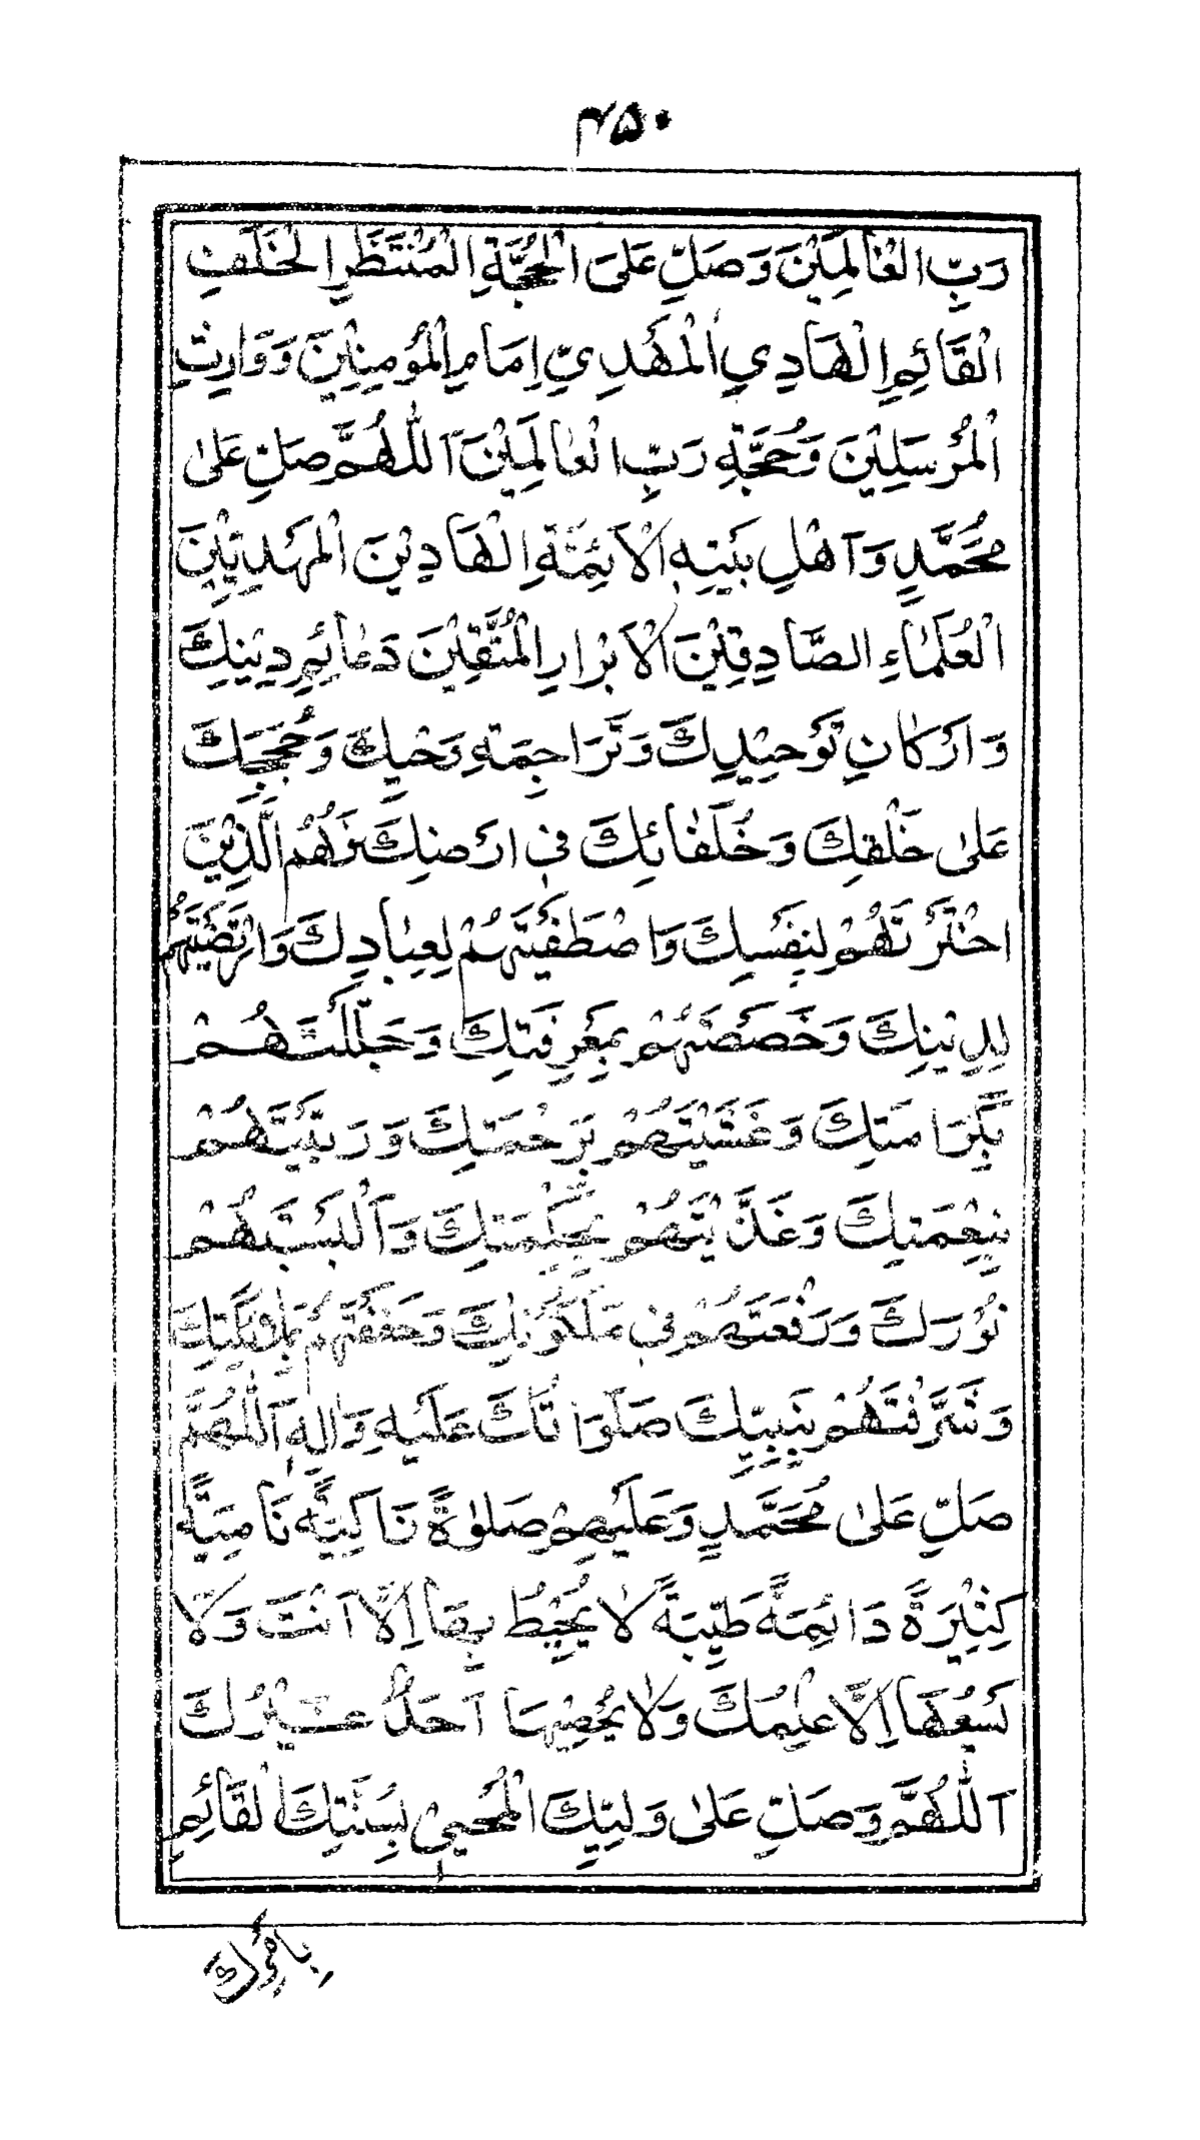 ۴۵۰
رَبِّ الْعٰالَمِيْنَ وَصَلِّ عَلَى الْحُجَّةِ الْمُنْتَظَرِ الْخَلَفِ
الْقَائِمِ الْهَادِي الْمَهْدِيِّ اِمَامِ الْمُؤْمِنِيْنَ وَوَارِثِ
الْمُرْسَلِيْنَ وَحُجَّةِ رَبِّ الْعٰالَمِيْنَ اَللّٰهُمَّ صَلِّ عَلىٰ
مُحَمَّدٍ وَاَهْلِ بَيْتِهِ الْاَئِمَّةِ الْهَادِيْنَ الْمَهْدِيِّيْنَ
الْعُلَمَاءِ الصَّادِقِيْنَ الْاَبْرَارِ الْمُتَّقِيْنَ دَعٰائِمِ دِيْنِكَ
وَاَرْكَانِ تَوْحِيْدِكَ وَتَرَاجِمَةِ وَحْيِكَ وَحُجَجِكَ
عَلىٰ خَلْقِكَ وَخُلَفٰائِكَ فِى اَرْضِكَ فَهُمُ الَّذِيْنَ
اخْتَرْتَهُمْ لِنَفْسِكَ وَاصْطَفَيْتَهُمْ لِعِبَادِكَ وَارْتَضَيْتَهُمْ
لِدِيْنِكَ وَخَصَصْتَهُمْ بِمَعْرِفَتِكَ وَجَلَّلْتَهُمْ
بِكَرَامَتِكَ وَغَشَّيْتَهُمْ بِرَحْمَتِكَ وَرَبَّيْتَهُمْ
بِنِعْمَتِكَ وَغَذَّيْتَهُمْ بِحِكْمَتِكَ وَاَلْبَسْتَهُمْ
نُوْرَكَ وَرَفَعْتَهُمْ فِى مَلَكُوْتِكَ وَحَفَفْتَهُمْ بِمَلٰئِكَتِكَ
وَشَرَّفْتَهُمْ بِنَبِيِّكَ صَلَوَاتُكَ عَلَيْهِ وَاٰلِهِ اَللّٰهُمَّ
صَلِّ عَلىٰ مُحَمَّدٍ وَعَلَيْهِمْ صَلٰوةً زَاكِيَةً نَامِيَةً
كَثِيْرَةً دَائِمَةً طَيِّبَةً لَا يُحِيْطُ بِهَا اِلَّا اَنْتَ وَلَا
يَسَعُهَا اِلَّا عِلْمُكَ وَلَا يُحْصِيْهَا اَحَدٌ غَيْرُكَ
اَللّٰهُمَّ وَصَلِّ عَلىٰ وَلِيِّكَ الْمُحْيِيْ سُنَّتَكَ الْقَائِمِ
بِاَمْرِكَ